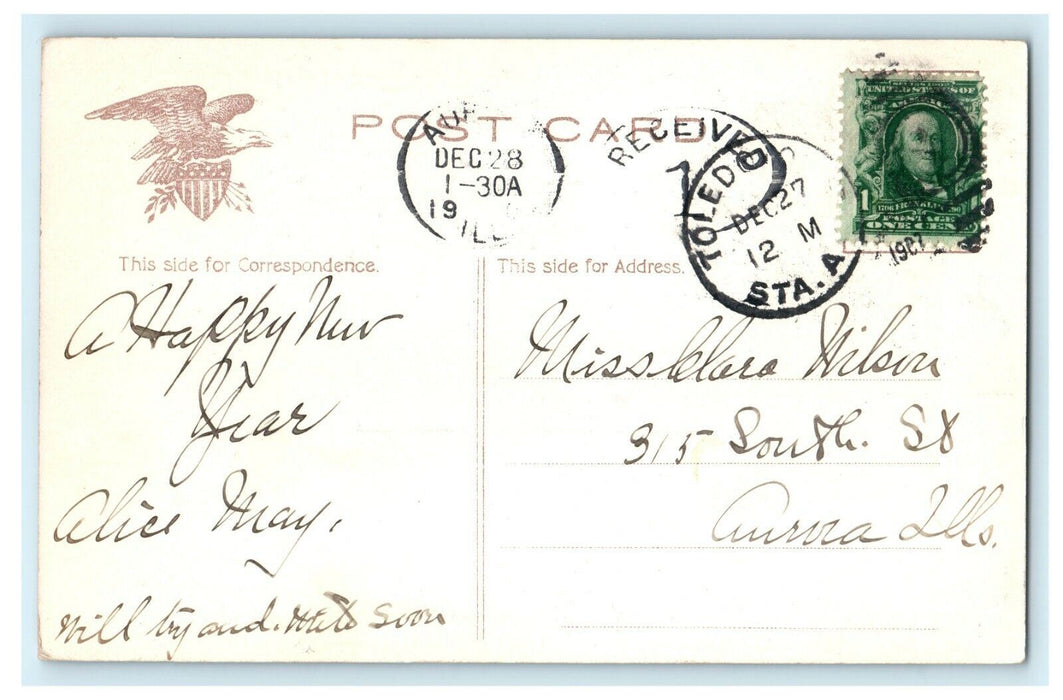 POST CARD
AU
DEC 28
1-30A
19
ILL
RECEIVED
1
TOLEDO O
DEC 27
12 M
STA. A
1907
UNITED STATES OF
AMERICA
1 1706 FRANKLIN 1790 1
POSTAGE
ONE CENT
This side for Correspondence.
A Happy New
Year
Alice May.
Will try and. write soon
This side for Address.
Miss Clara Wilson
315 South. St
Aurora Ills.